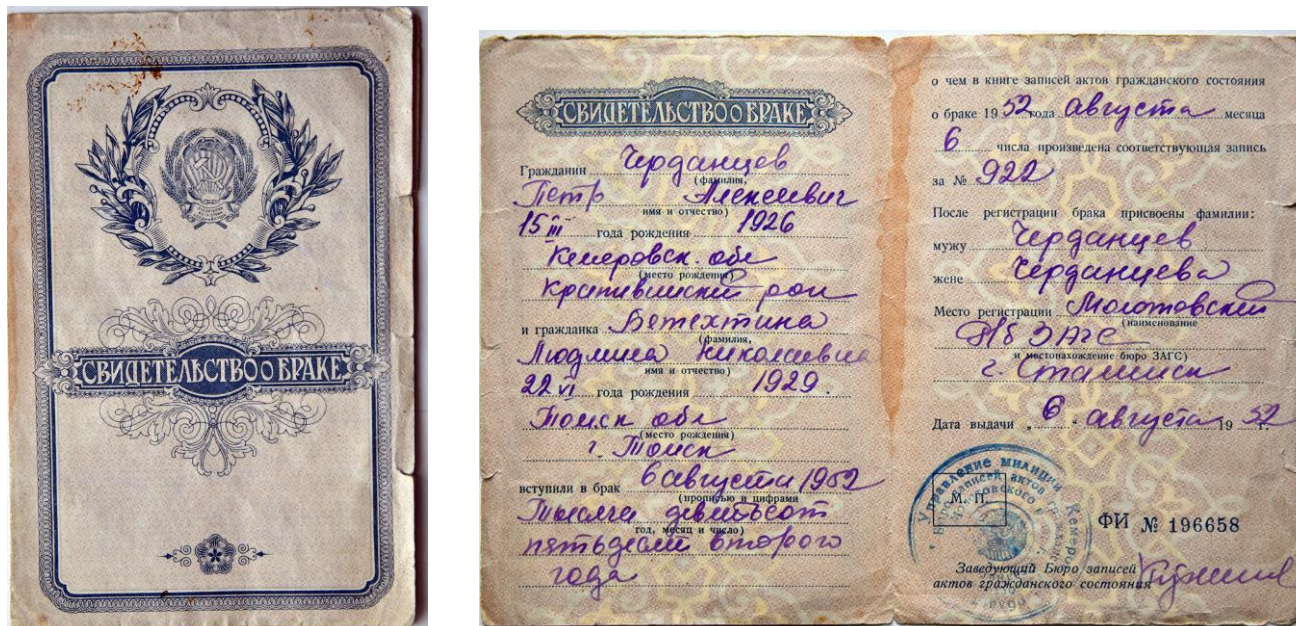 СВИДЕТЕЛЬСТВО О БРАКЕ
СВИДЕТЕЛЬСТВО О БРАКЕ
Гражданин Черданцев
(фамилия,
Петр Алексеевич
имя и отчество)
15 III года рождения 1926
Кемеровск. обл
(место рождения)
Крапивинский рои
и гражданка Бетехтина
(фамилия,
Людмила Николаевна
имя и отчество)
22 VI года рождения 1929.
Томск обл
(место рождения)
г. Томск
вступили в брак 6 августа 1952
(прописью и цифрами
Тысяча девятьсот
год, месяц и число)
пятьдесят второго
года
о чем в книге записей актов гражданского состояния
о браке 19 52 года августа месяца
6 числа произведена соответствующая запись
за № 922
После регистрации брака присвоены фамилии:
мужу Черданцев
жене Черданцева
Место регистрации Молотовский
(наименование
ЗАГС
и местонахождение бюро ЗАГС)
г. Сталинск
Дата выдачи „ 6 " августа 19 52 г.
Управление милиции
М. П.
ФИ № 196658
Заведующий Бюро записей
актов гражданского состояния